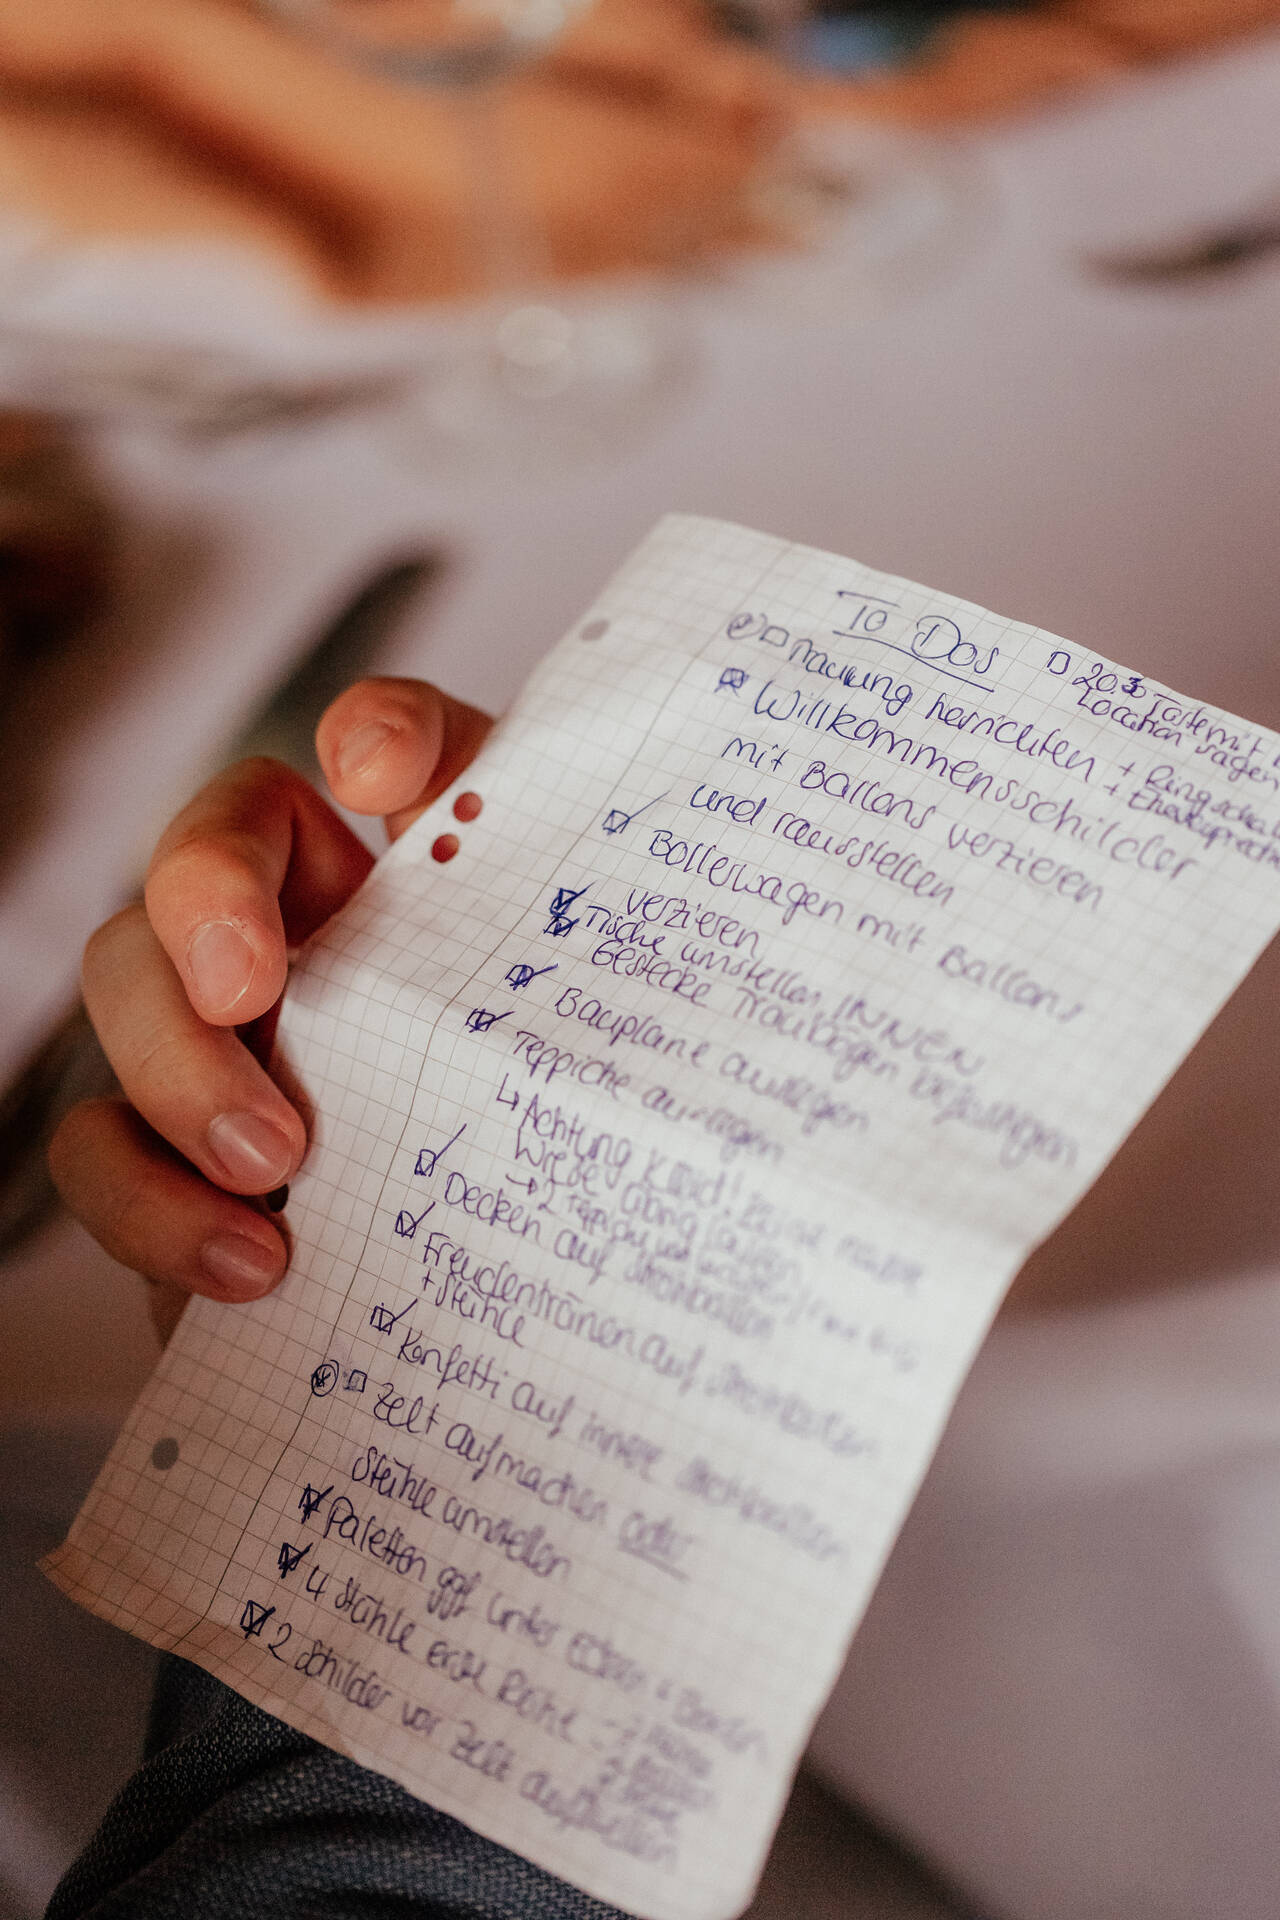 To Dos
20.30 Torte mit
Location sagen
Trauung herrichten + Ringschale
+ Eheversprechen
Willkommensschilder
mit Ballons verzieren
und rausstellen
Bollerwagen mit Ballons
verzieren
Tische umstellen INNEN
Gestecke Traubogen befestigen
Baupläne auflegen
Teppiche auslegen
↳ Achtung Kleid!
Wiese
→ 2 Teppiche
Decken auf Strohballen
Freudentränen auf Strohballen
+ Stühle
Konfetti auf innere Strohballen
Zelt aufmachen oder
Stühle umstellen
Paletten ggf unter
4 Stühle erste Reihe
2 Schilder vor Zelt aufstellen